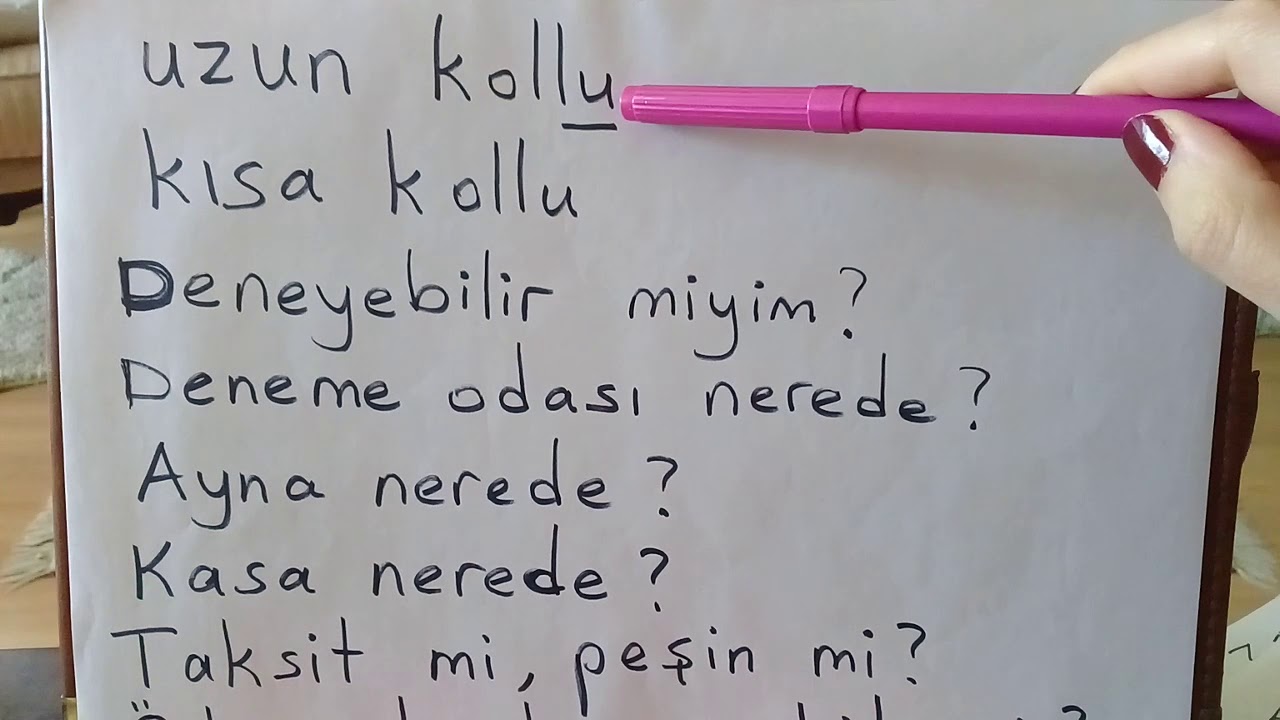 uzun kollu
kısa kollu
Deneyebilir miyim?
Deneme odası nerede?
Ayna nerede?
Kasa nerede?
Taksit mi, peşin mi?